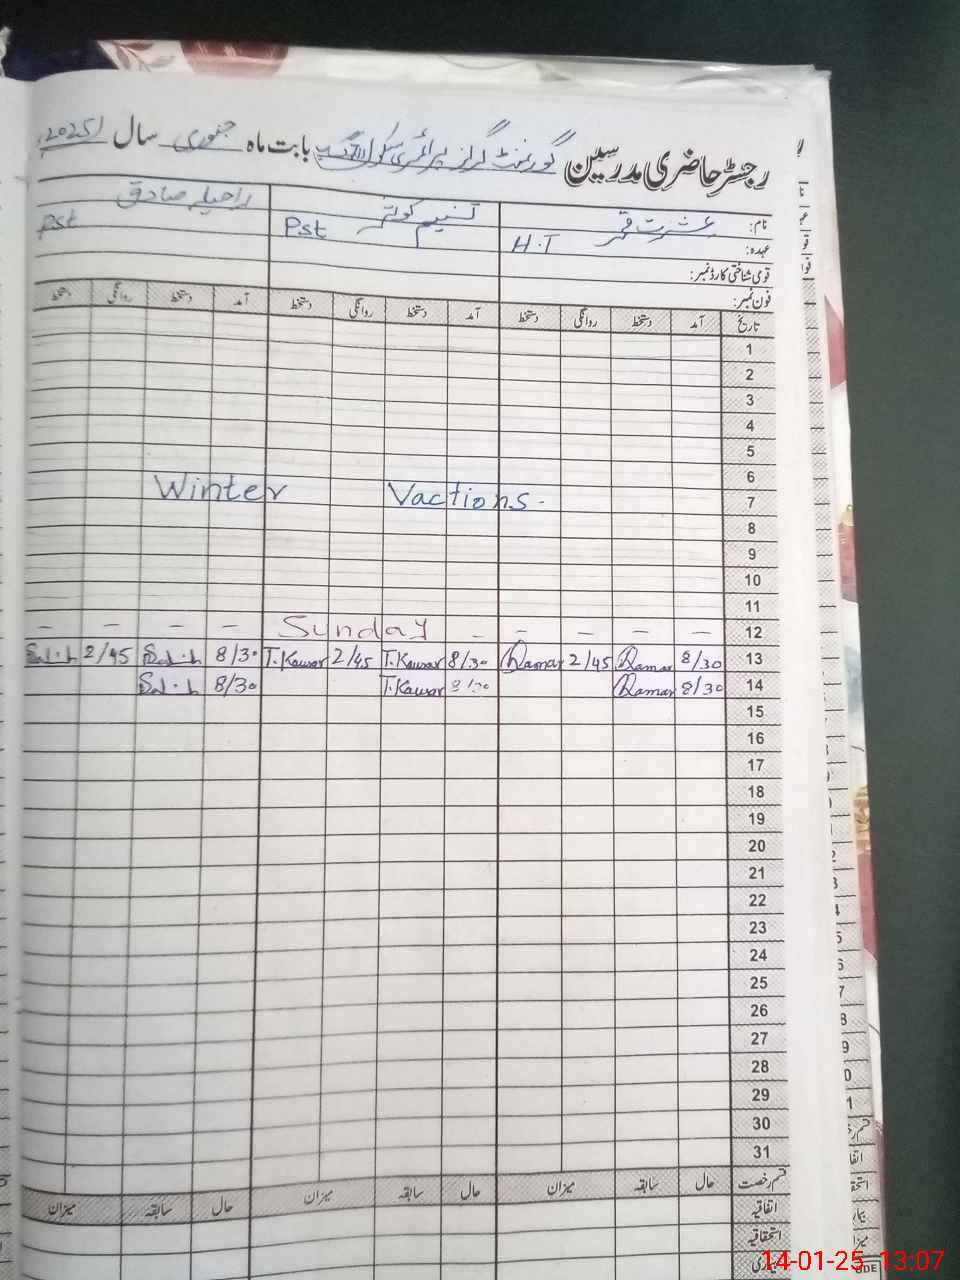 رجسٹر حاضری مدرسین گورنمنٹ گرلز پرائمری سکول بابت ماہ جنوری سال 2025
نام: عشرت قمر تسنیم کوثر راحیلہ صادق
عہدہ: H.T Pst Pst
قومی شناختی کارڈ نمبر:
فون نمبر:
تاریخ آمد دستخط روانگی دستخط آمد دستخط روانگی دستخط آمد دستخط روانگی دستخط
1
2
3
4
5
6
Winter Vactions. 7
8
9
10
11
– – – – Sunday – – – – – 12
2/45 8/30 T.Kawsar 2/45 T.Kawsar 8/30 Qamar 2/45 Qamar 8/30 13
8/30 T.Kawsar 8/30 Qamar 8/30 14
15
16
17
18
19
20
21
22
23
24
25
26
27
28
29
30
31
قسم رخصت حال سابقہ میزان حال سابقہ میزان حال سابقہ میزان
اتفاقیہ
استحقاقیہ
بیماری
14-01-25 13:07